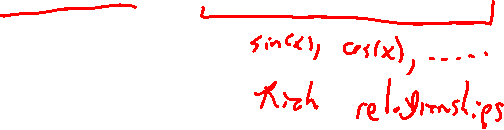 sin(x), cos(x), .....
Rich relationships